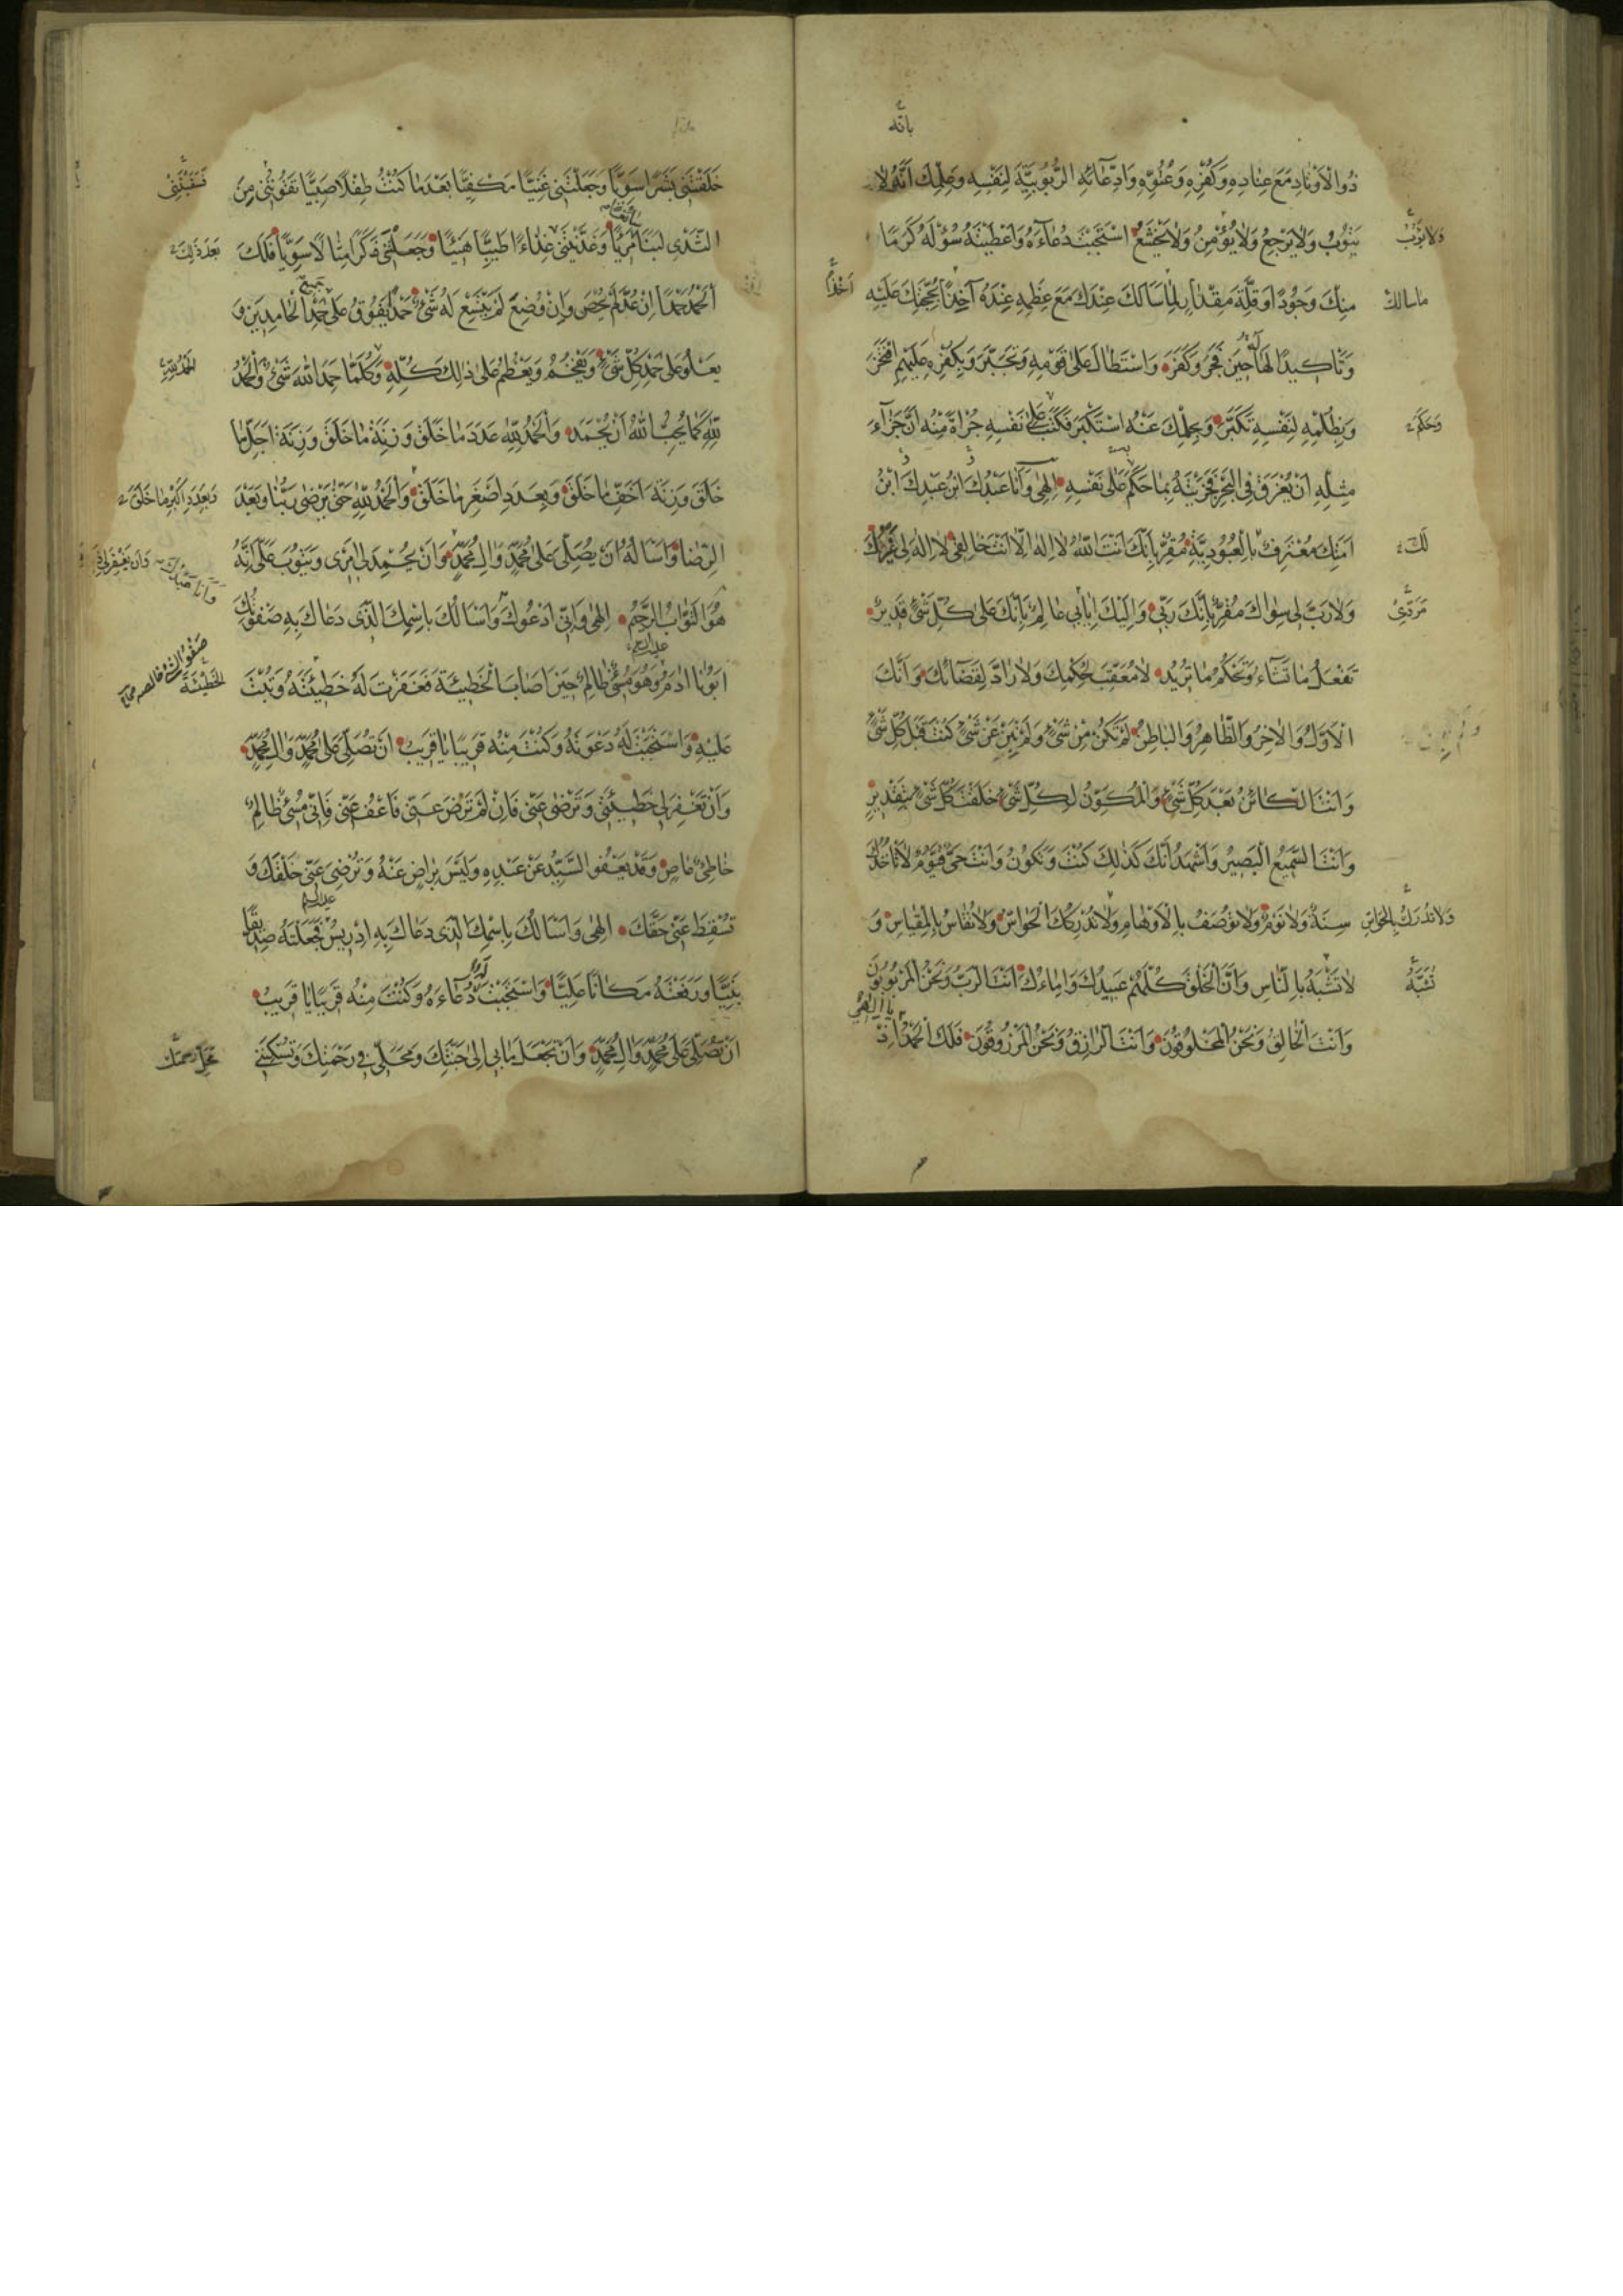 بانه
ذُوالْاَوْتادِ مَعَ عِنادِهِ وَكُفْرِهِ وَعُتُوِّهِ وَادِّعآئِهِ الرُّبُوبِيَّةَ لِنَفْسِهِ وَعِلْمِكَ اَنَّهُ لا
يَتُوبُ وَلا يَرْجِعُ وَلا يُؤْمِنُ وَلا يَخْشَعُ اسْتَجَبْتَ دُعآءَهُ وَاَعْطَيْتَهُ سُؤْلَهُ كَرَمًا
وَلا يَتُوبُ
مِنْكَ وَجُودًا وَقِلَّةَ مِقْدارٍ لِما سَاَلَكَ عِنْدَكَ مَعَ عِظَمِهِ عِنْدَهُ آخِذًا بِحُجَّتِكَ عَلَيْهِ
ما سالك
اَخْذًا
وَتَاْكِيدًا لَها حِينَ فَجَرَ وَكَفَرَ وَاسْتَطالَ عَلى قَوْمِهِ وَتَجَبَّرَ وَبِكُفْرِهِ عَلَيْهِمِ افْتَخَرَ
وَبِظُلْمِهِ لِنَفْسِهِ تَكَبَّرَ وَبِحِلْمِكَ عَنْهُ اسْتَكْبَرَ فَكَتَبَ عَلى نَفْسِهِ جُرْاَةً مِنْهُ اَنَّ جَزآءَ
وَحَكَمَ
مِثْلِهِ اَنْ يُغْرَقَ فِي الْبَحْرِ فَجَزَيْتَهُ بِما حَكَمَ عَلى نَفْسِهِ اِلهِي وَاَنَا عَبْدُكَ ابْنُ عَبْدِكَ وَابْنُ
اَمَتِكَ مُعْتَرِفٌ بِالْعُبُودِيَّةِ مُقِرٌّ بِاَنَّكَ اَنْتَ اللهُ لا اِلهَ اِلّا اَنْتَ خالِقِي لا اِلهَ لِي غَيْرُكَ
لَكَ
وَلا رَبَّ لِي سِواكَ مُقِرٌّ بِاَنَّكَ رَبِّي وَاِلَيْكَ اِيابِي عالِمٌ بِاَنَّكَ عَلى كُلِّ شَيْءٍ قَدِيرٌ
مَرَدِّي
تَفْعَلُ ما تَشآءُ وَتَحْكُمُ ما تُرِيدُ لا مُعَقِّبَ لِحُكْمِكَ وَلا رادَّ لِقَضآئِكَ وَاَنَّكَ
الْاَوَّلُ وَالْاخِرُ وَالظّاهِرُ وَالْباطِنُ لَمْ تَكُنْ مِنْ شَيْءٍ وَلَمْ تَبِنْ عَنْ شَيْءٍ كُنْتَ قَبْلَ كُلِّ شَيْءٍ
وَاَنْتَ الْكائِنُ بَعْدَ كُلِّ شَيْءٍ وَالْمُكَوِّنُ لِكُلِّ شَيْءٍ خَلَقْتَ كُلَّ شَيْءٍ بِتَقْدِيرٍ
وَاَنْتَ السَّمِيعُ الْبَصِيرُ وَاَشْهَدُ اَنَّكَ كَذلِكَ كُنْتَ وَتَكُونُ وَاَنْتَ حَيٌّ قَيُّومٌ لا تَاْخُذُكَ
سِنَةٌ وَلا نَوْمٌ وَلا تُوصَفُ بِالْاَوْهامِ وَلا تُدْرِكُكَ الْحَواسُّ وَلا تُقاسُ بِالْمِقْياسِ وَ
وَلا تُدْرَكُ بِالْحَواسِّ
لا تُشْبَهُ بِالنّاسِ وَاَنَّ الْخَلْقَ كُلَّهُمْ عَبِيدُكَ وَاِماءُكَ اَنْتَ الرَّبُّ وَنَحْنُ الْمَرْبُوبُونَ
تُشَبَّهُ
وَاَنْتَ الْخالِقُ وَنَحْنُ الْمَخْلُوقُونَ وَاَنْتَ الرّازِقُ وَنَحْنُ الْمَرْزُوقُونَ فَلَكَ الْحَمْدُ اِذْ
يا الهي
خَلَقْتَنِي بَشَرًا سَوِيًّا وَجَعَلْتَنِي غَنِيًّا مَكْفِيًّا بَعْدَ ما كُنْتُ طِفْلًا صَبِيًّا تَقُوتُنِي مِنَ
الثَّدْيِ لَبَنًا مَرِيئًا وَغَذَّيْتَنِي غِذاءً طَيِّبًا هَنِيئًا وَجَعَلْتَنِي ذَكَرًا مِثالًا سَوِيًّا فَلَكَ
بَعْدَ ذلِكَ
الْحَمْدُ حَمْدًا اِنْ عُدَّ لَمْ يُحْصَ وَاِنْ وُضِعَ لَمْ يَتَّسِعْ لَهُ شَيْءٌ حَمْدًا يَفُوقُ عَلى حَمْدِ الْحامِدِينَ وَ
جميع
يَعْلُو عَلى حَمْدِ كُلِّ شَيْءٍ وَيَفْخُمُ وَيَعْظُمُ عَلى ذلِكَ كُلِّهِ وَكُلَّما حَمِدَ اللهَ شَيْءٌ وَالْحَمْدُ
الْحَمْدُ لِلّهِ
لِلّهِ كَما يُحِبُّ اللهُ اَنْ يُحْمَدَ وَالْحَمْدُ لِلّهِ عَدَدَ ما خَلَقَ وَزِنَةَ ما خَلَقَ وَزِنَةَ اَجَلِّ ما
خَلَقَ وَزِنَةَ اَخَفِّ ما خَلَقَ وَبِعَدَدِ اَصْغَرِ ما خَلَقَ وَالْحَمْدُ لِلّهِ حَتّى يَرْضى رَبُّنا وَبَعْدَ
وَبِعَدَدِ اَكْبَرِ ما خَلَقَ
الرِّضا وَاَسْاَلُهُ اَنْ يُصَلِّيَ عَلى مُحَمَّدٍ وَالِ مُحَمَّدٍ وَاَنْ يُحْمَدَ لِي اَمْرِي وَيَتُوبَ عَلَيَّ اِنَّهُ
وَاَنْ يَغْفِرَ لِي
هُوَ التَّوّابُ الرَّحِيمُ اِلهِي وَاِنِّي اَدْعُوكَ وَاَسْاَلُكَ بِاسْمِكَ الَّذِي دَعاكَ بِهِ صَفْوَتُكَ
عليه السلم
اَبُونا ادَمُ وَهُوَ مُسِيءٌ ظالِمٌ حِينَ اَصابَ الْخَطِيئَةَ فَغَفَرْتَ لَهُ خَطِيئَتَهُ وَتُبْتَ
عَلَيْهِ وَاسْتَجَبْتَ لَهُ دَعْوَتَهُ وَكُنْتَ مِنْهُ قَرِيبًا يا قَرِيبُ اَنْ تُصَلِّيَ عَلى مُحَمَّدٍ وَالِ مُحَمَّدٍ
وَاَنْ تَغْفِرَ لِي خَطِيئَتِي وَتَرْضى عَنِّي فَاِنْ لَمْ تَرْضَ عَنِّي فَاعْفُ عَنِّي فَاِنِّي مُسِيءٌ ظالِمٌ
خاطِئٌ عاصٍ وَقَدْ يَعْفُو السَّيِّدُ عَنْ عَبْدِهِ وَلَيْسَ بِراضٍ عَنْهُ وَتُرْضِيَ عَنِّي خَلْقَكَ وَ
تُسْقِطَ عَنِّي حَقَّكَ اِلهِي وَاَسْاَلُكَ بِاسْمِكَ الَّذِي دَعاكَ بِهِ اِدْرِيسُ فَجَعَلْتَهُ صِدِّيقًا
عليه السلم
نَبِيًّا وَرَفَعْتَهُ مَكانًا عَلِيًّا وَاسْتَجَبْتَ دُعآءَهُ وَكُنْتَ مِنْهُ قَرِيبًا يا قَرِيبُ
اَنْ تُصَلِّيَ عَلى مُحَمَّدٍ وَالِ مُحَمَّدٍ وَاَنْ تَجْعَلَ مَابِي اِلى جَنَّتِكَ وَمَحَلِّي فِي رَحْمَتِكَ وَتُسْكِنَنِي